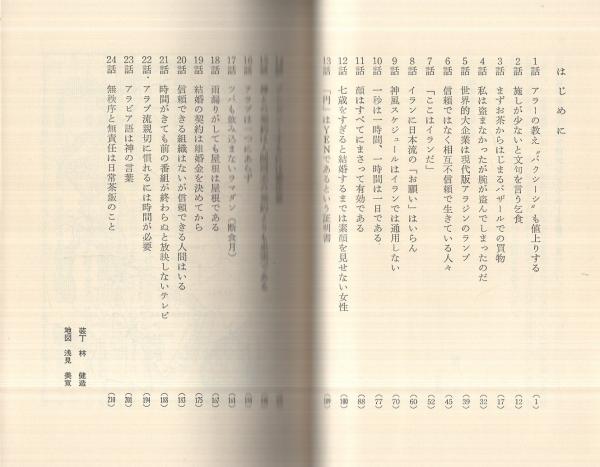 はじめに
1話 アラーの教え〝バクシーシ〟も値上りする (1)
2話 施しが少ないと文句を言う乞食 (12)
3話 まずお茶からはじまるバザールでの買物 (17)
4話 私は盗まなかったが腕が盗んでしまったのだ (32)
5話 世界的大企業は現代版アラジンのランプ (39)
6話 信頼ではなく相互不信頼で生きている人々 (45)
7話 「ここはイランだ」 (52)
8話 イランに日本流の「お願い」はいらん (60)
9話 神風スケジュールはイランでは通用しない (70)
10話 一秒は一時間、一時間は一日である (77)
11話 顔はすべてにまさって有効である (88)
12話 七歳をすぎると結婚するまでは素顔を見せない女性 (100)
13話 「円」はYENであるという証明書 (109)
16話 アラブは一つにあらず
17話 ツバも飲み込まないラマダン(断食月) (161)
18話 雨漏りがしても屋根は屋根である (167)
19話 結婚の契約は離婚金を決めてから (175)
20話 信頼できる組織はないが信頼できる人間はいる (183)
21話 時間がきても前の番組が終わらぬと放映しないテレビ (188)
22話 アラブ流親切に慣れるには時間が必要 (194)
23話 アラビア語は神の言葉 (201)
24話 無秩序と無責任は日常茶飯のこと (210)
装丁 林 健造
地図 浅見 美宣